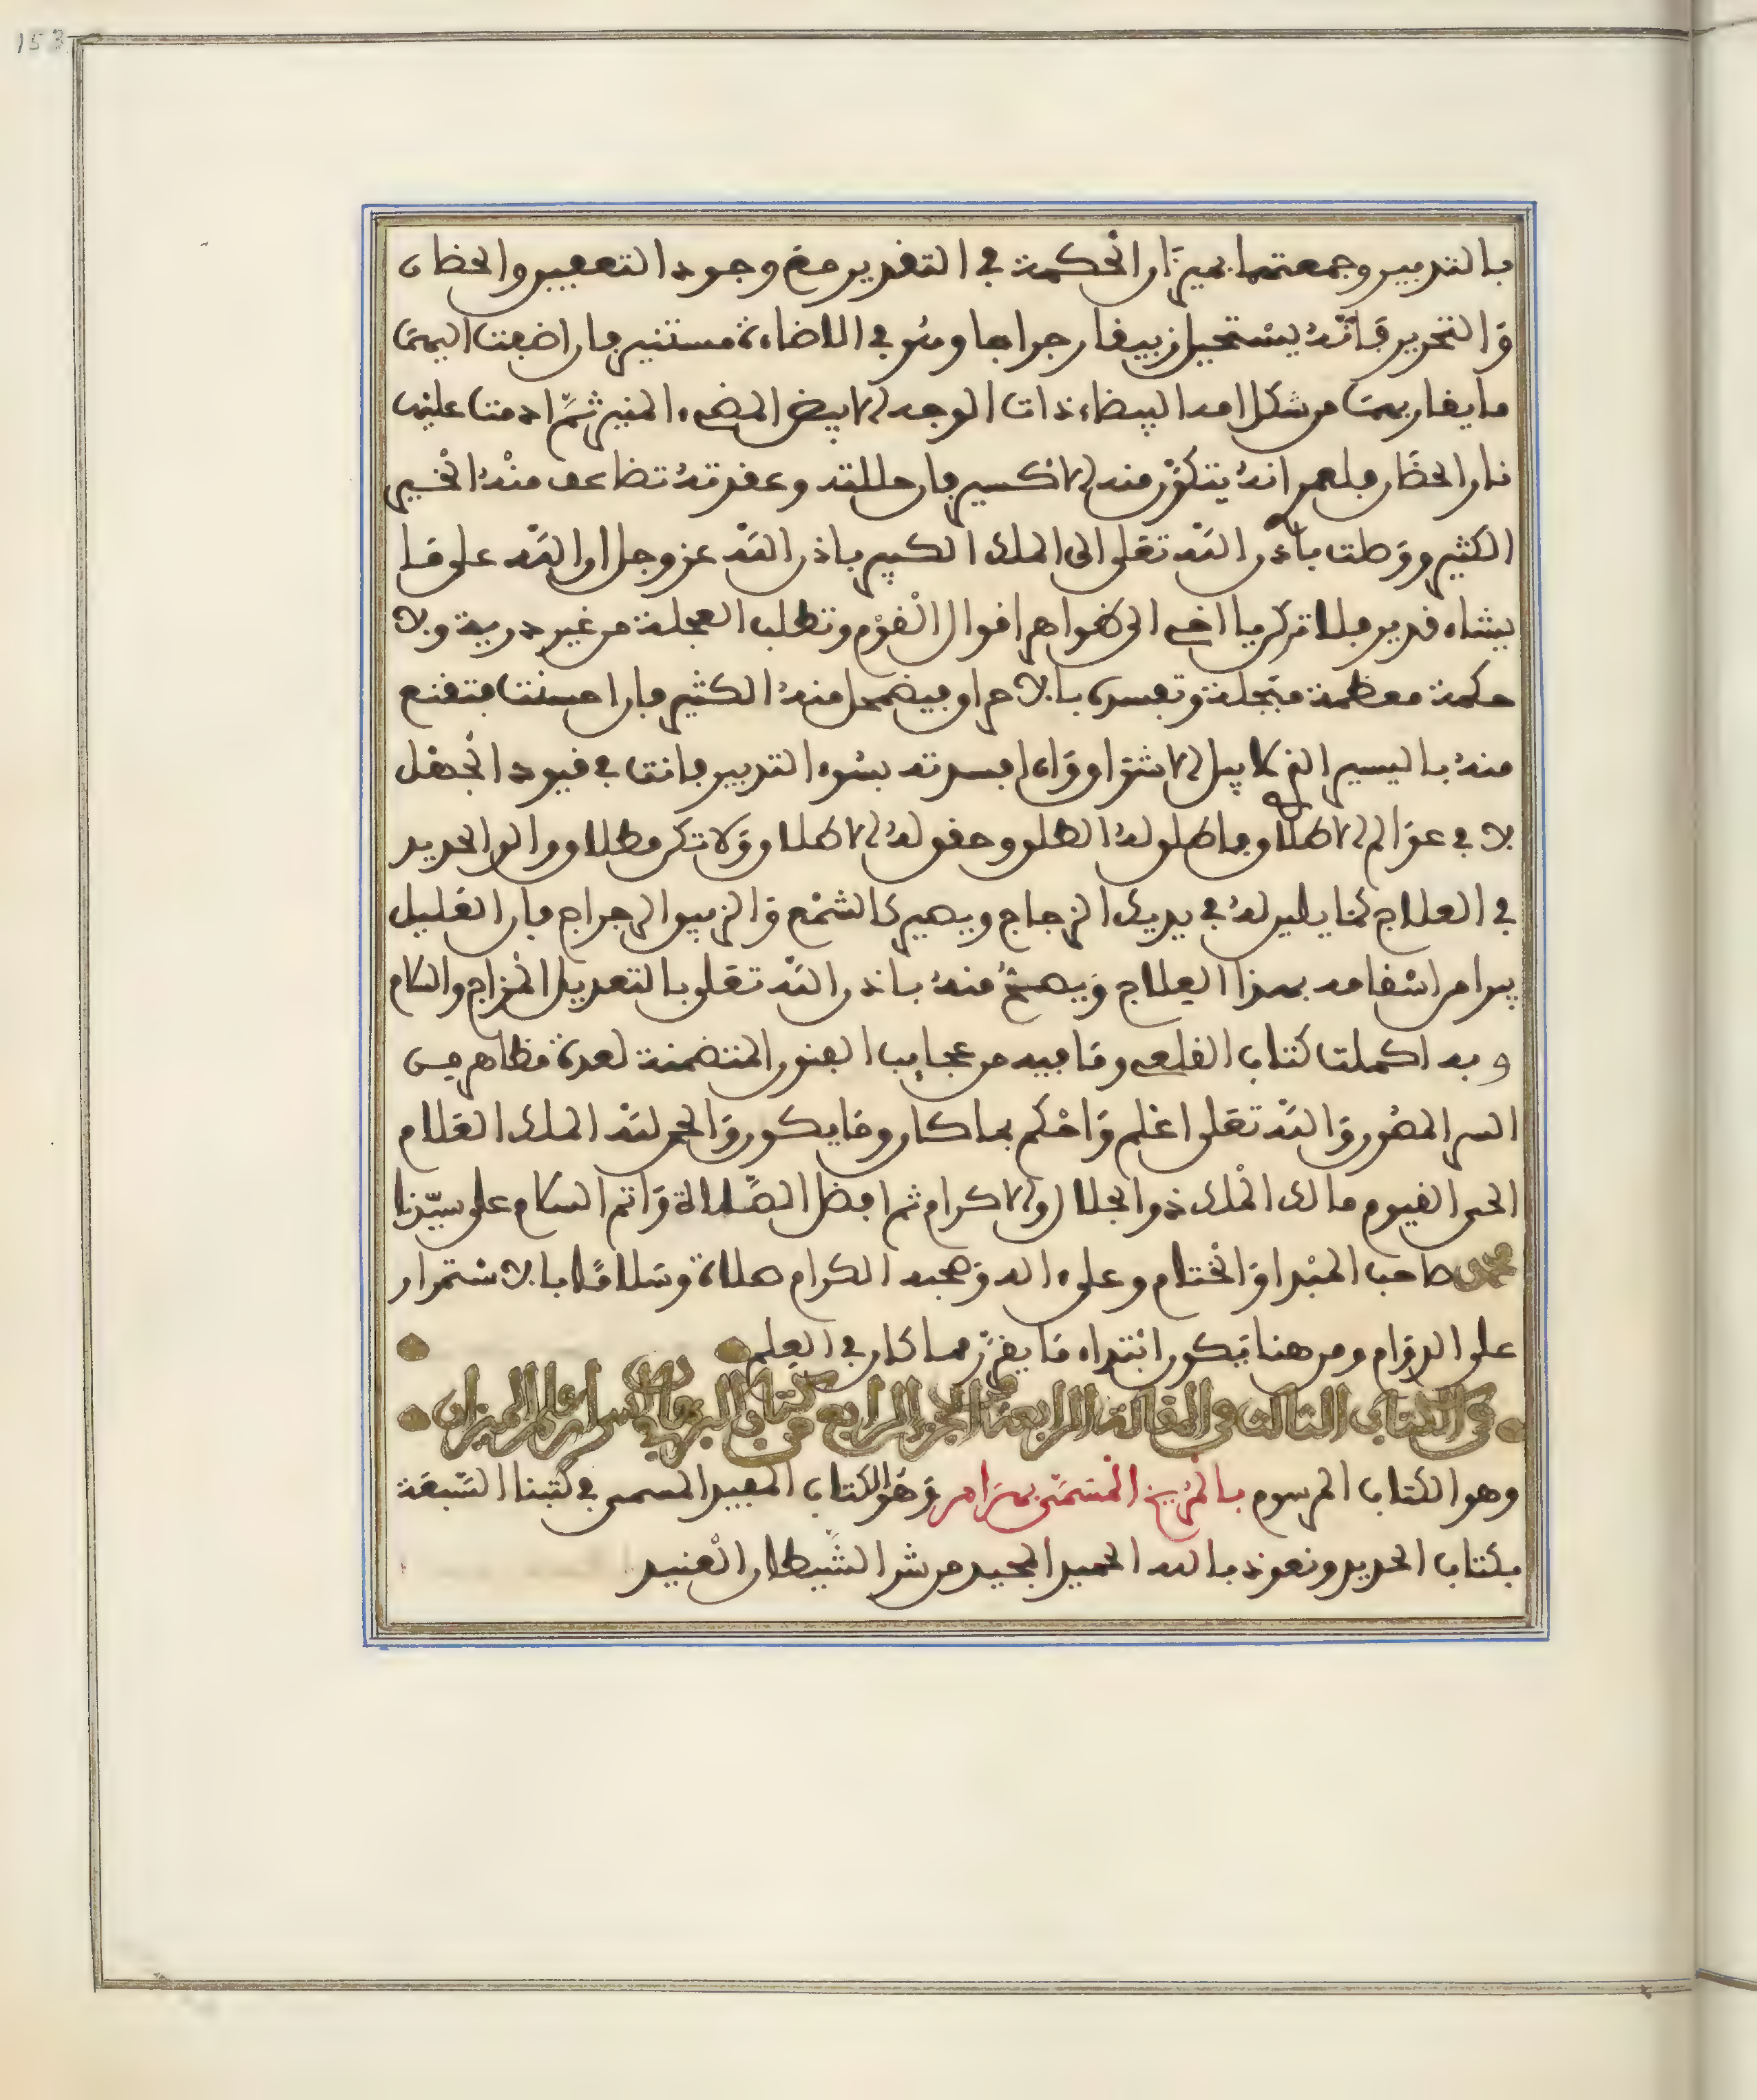 153
بالتدبير وجمعتهما بميزان الحكمة في التقدير مع وجود التعفين والحضان
والتحرير فانه يستحيل زيبقا رجراجا وهو في الاضاءة مستنير فان اضفت اليها
ما يقاربها من شكل امه البيضاء ذات الوجه الابيض المضيء المنير ثم ادمت عليها
نار الحضان فلعمر انه يتكون منه الاكسير فان حللته وعقدته تضاعف منه الخير
الكثير ووصلت باذن الله تعلى الى الملك الكبير باذن الله عز وجل ان الله على ما
يشاء قدير فلا تركن يا اخي الى ظواهر اقوال القوم وتطلب العجلة من غير درية ولا
حكمة معظمة مبجلة وتفسده بالاحراق فيضمحل منه الكثير فان احسنت فتقنع
منه باليسير الذي لا يبل الاشواق وان افسدته بسوء التدبير فانت في قيود الجهل
لا في عوالم الاطلاق فما طلوله الطلو وحقوله الاطلاق ولا تكن مطلاق والن الحديد
في العلاج كما يلين له في يديك الزجاج ويصير كالشمع والزيبق الرجراج فان القليل
يبرا من اسقامه بهذا العلاج ويصح منه باذن الله تعلى بالتعديل المزاج والسلام
وبه اكملت كتاب القلعي وما فيه من عجايب الفنون المتضمنة لعدة مظاهر من
السر المصون والله تعلى اعلم واحكم بما كان وما يكون والحمد لله الملك العلام
الحي القيوم مالك الملك ذو الجلال والاكرام ثم افضل الصلاة واتم السلام على سيدنا
محمد صاحب المبدا والختام وعلى اله وصحبه الكرام صلاة وسلاما بالاستمرار
على الدوام ومن هنا يكون ابتداء ما يقرر مما كان في العلم
في الكتاب الثالث في المقالة الرابعة من الجزء الرابع من كتاب البرهان في اسرار علم الميزان
وهو الكتاب المرسوم بالمريخ المسمى بهرام وهو الكتاب المفيد المسمى في كتبنا السبعة
بكتاب الحديد ونعوذ بالله الحميد المجيد من شر الشيطان العنيد